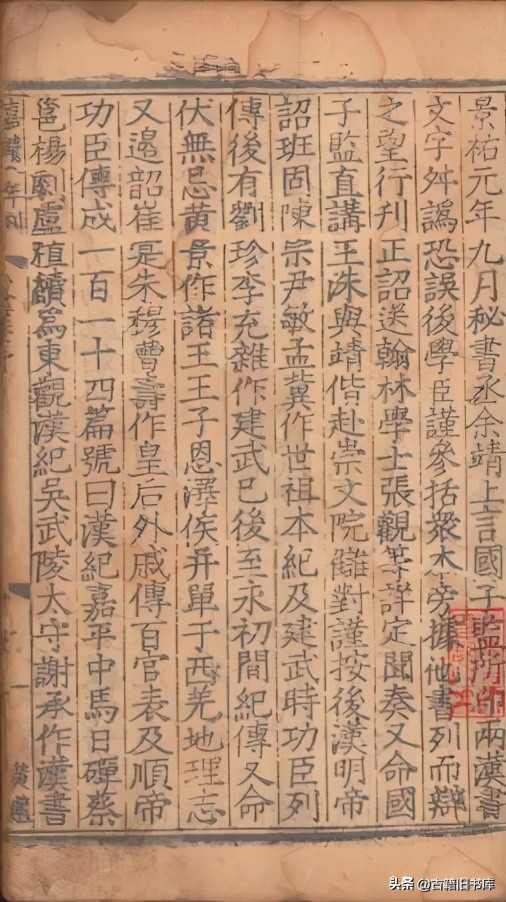 景祐元年九月秘書丞余靖上言國子監所印兩漢書
文字舛譌恐誤後學臣謹參括衆本旁據他書列而辯
之望行刋正詔送翰林學士張觀等詳定聞奏又命國
子監直講王洙與靖偕赴崇文院讎對謹按後漢明帝
詔班固陳宗尹敏孟冀作世祖本紀及建武時功臣列
傳後有劉珍李充雜作建武已後至永初間紀傳又命
伏無忌黄景作諸王王子恩澤侯并單于西羌地理志
又邊韶崔寔朱穆曹壽作皇后外戚傳百官表及順帝
功臣傳成一百一十四篇號曰漢紀嘉平中馬日磾蔡
邕楊彪盧植續爲東觀漢紀吳武陵太守謝承作漢書
头条 @古籍旧书库